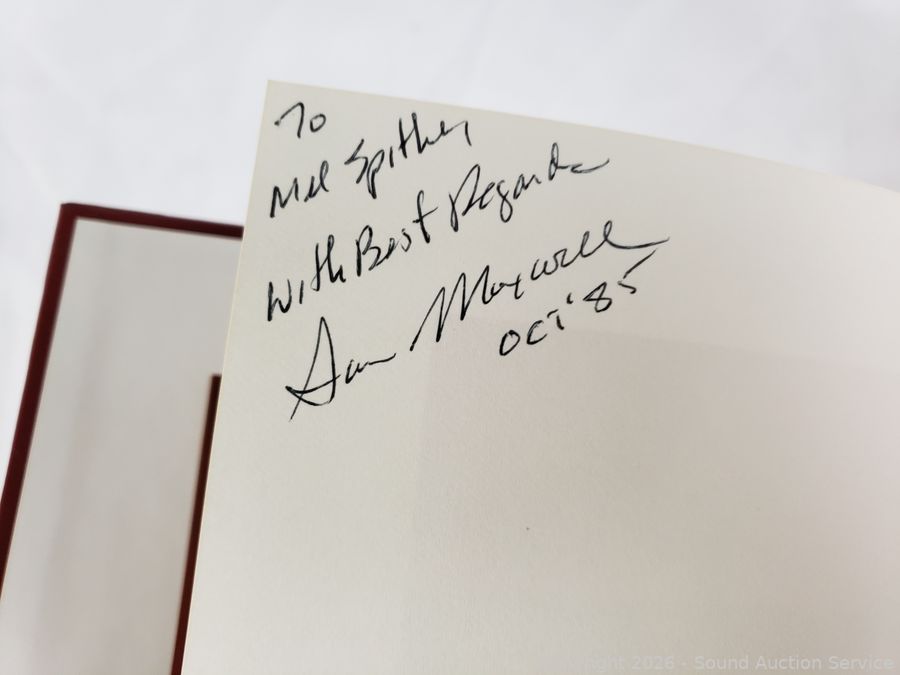 To
Mel Spithey
With Best Regards
Sam Maxwell
OCT '85
ght 2026 - Sound Auction Service